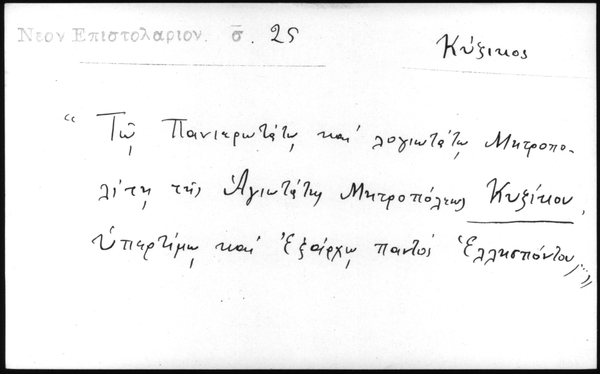 Νεον Επιστολαριον. σ̄. 25
Κύζικος
“Τῷ Πανιερωτάτῳ καὶ λογιωτάτῳ Μητροπο-
λίτῃ τῆς Ἁγιωτάτης Μητροπόλεως Κυζίκου,
ὑπερτίμῳ καὶ Ἐξάρχῳ παντὸς Ἑλλησπόντου...”